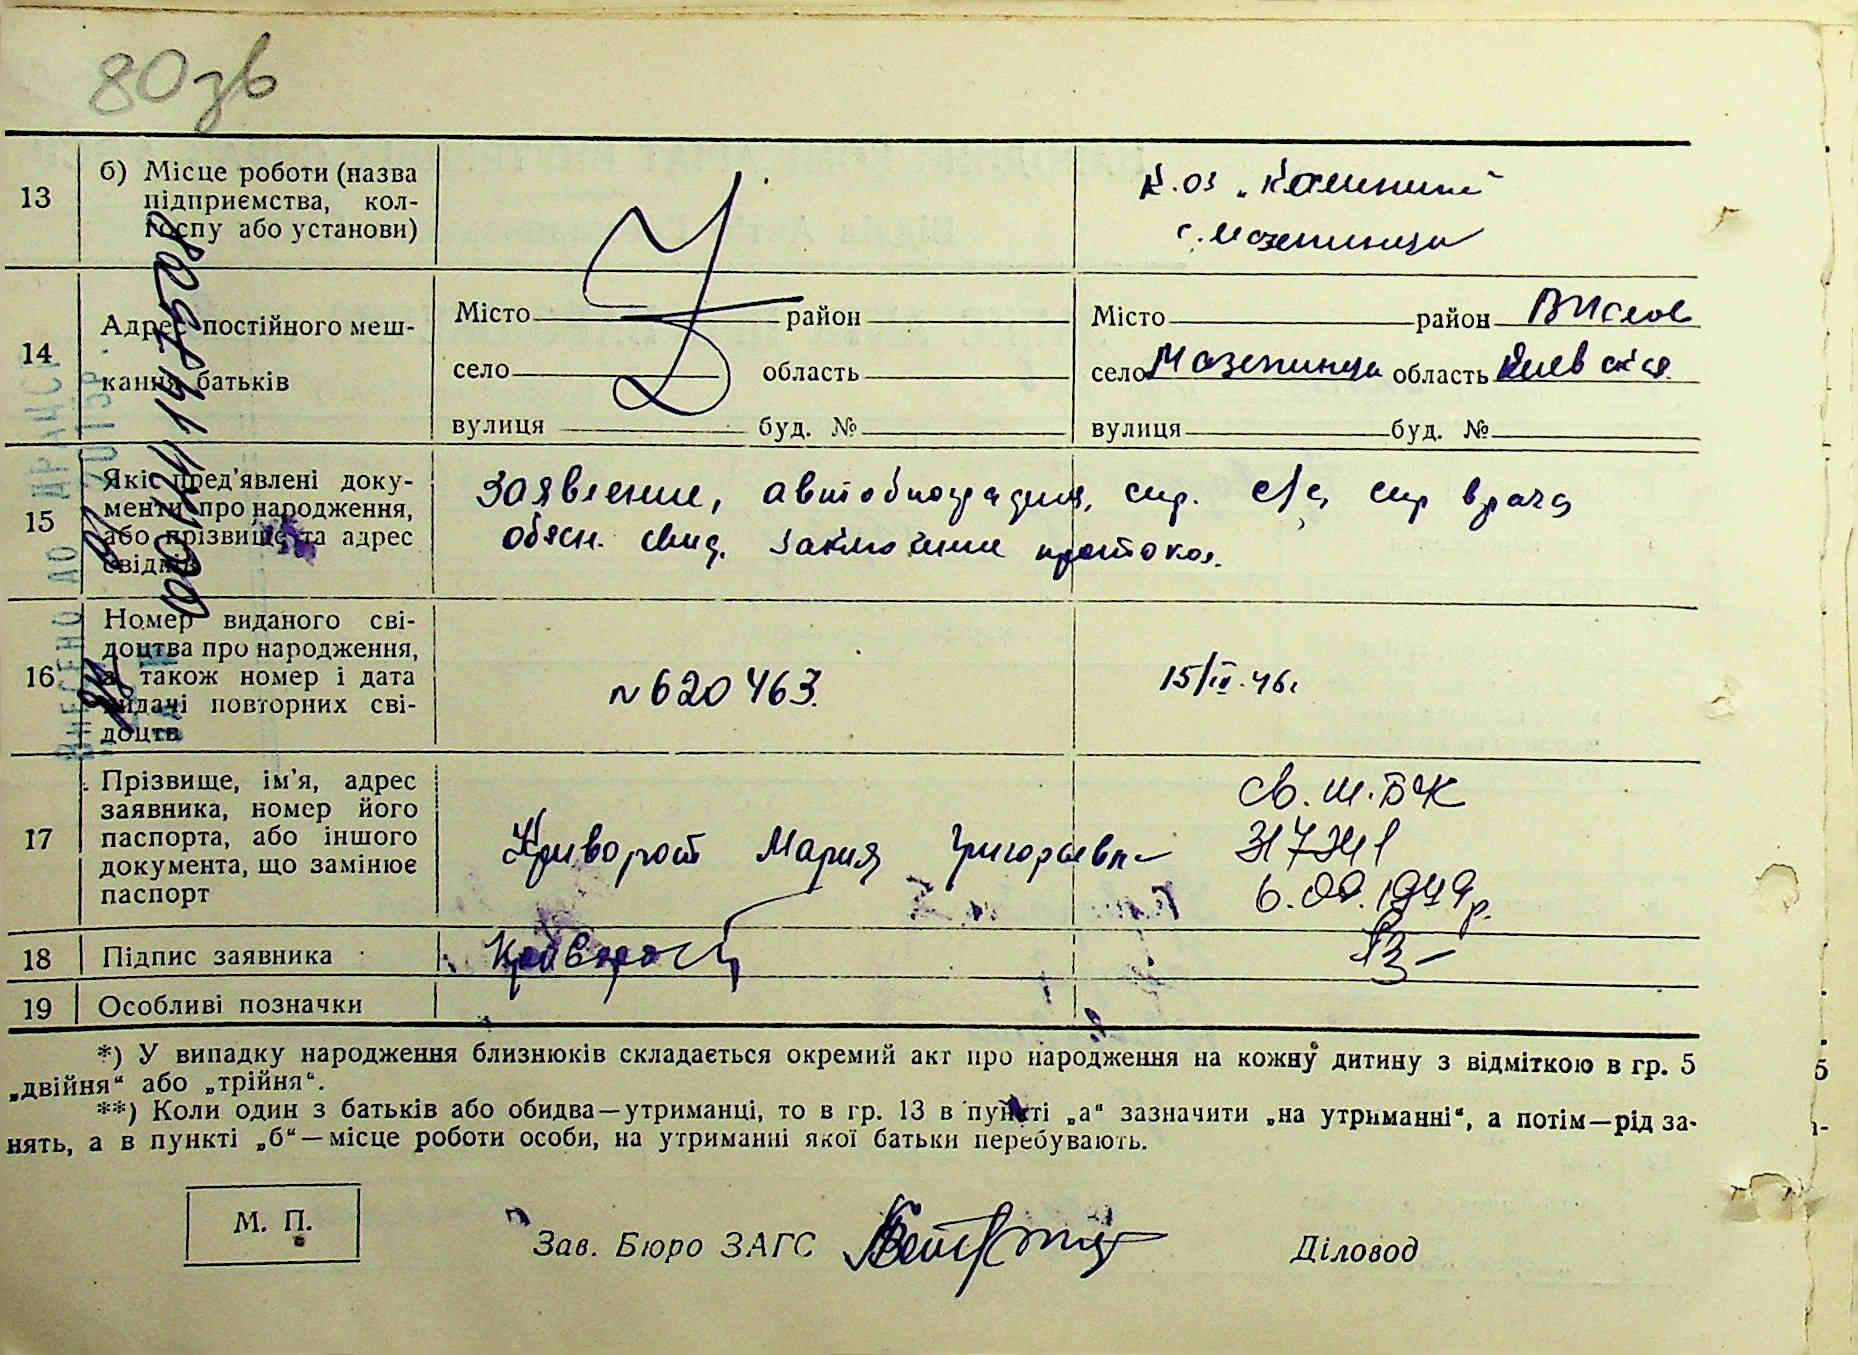 80зв
13 б) Місце роботи (назва
підприємства, кол-
госпу або установи)
с. Мазепинцы
14 Адрес постійного меш-
кання батьків
Місто район
село область
вулиця буд. №
Місто район
село Мазепинцы область Киевская
вулиця буд. №
15 Які пред'явлені доку-
менти про народження,
або прізвище та адрес
свідків
заявление, автобиография, спр. с/с, спр врача
обясн. свид. заключение протокол.
16 Номер виданого сві-
доцтва про народження,
а також номер і дата
видачі повторних сві-
доцтв
N 620463.
15/IV.46г
17 Прізвище, ім'я, адрес
заявника, номер його
паспорта, або іншого
документа, що замінює
паспорт
Криворот Мария Григорьевна
18 Підпис заявника
19 Особливі позначки
00121147508
ВНЕСЕНО ДО ДРАЦСГ
*) У випадку народження близнюків складається окремий акт про народження на кожну дитину з відміткою в гр. 5
„двійня“ або „трійня“.
**) Коли один з батьків або обидва—утриманці, то в гр. 13 в пункті „а“ зазначити „на утриманні“, а потім—рід за-
нять, а в пункті „б“—місце роботи особи, на утриманні якої батьки перебувають.
М. П.
Зав. Бюро ЗАГС
Діловод